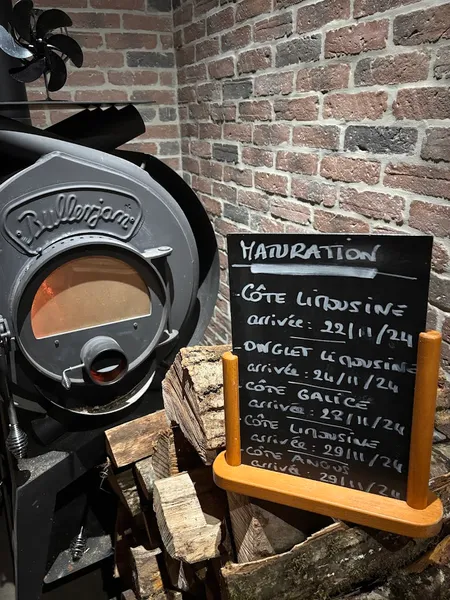 Bullerjan
MATURATION
- CÔTE LIMOUSINE
arrivée : 22/11/24
- ONGLET LIMOUSINE
arrivée : 24/11/24
- CÔTE GALICE
arrivée : 22/11/24
- CÔTE LIMOUSINE
arrivée : 29/11/24
- CÔTE ANGUS
arrivée : 29/11/24